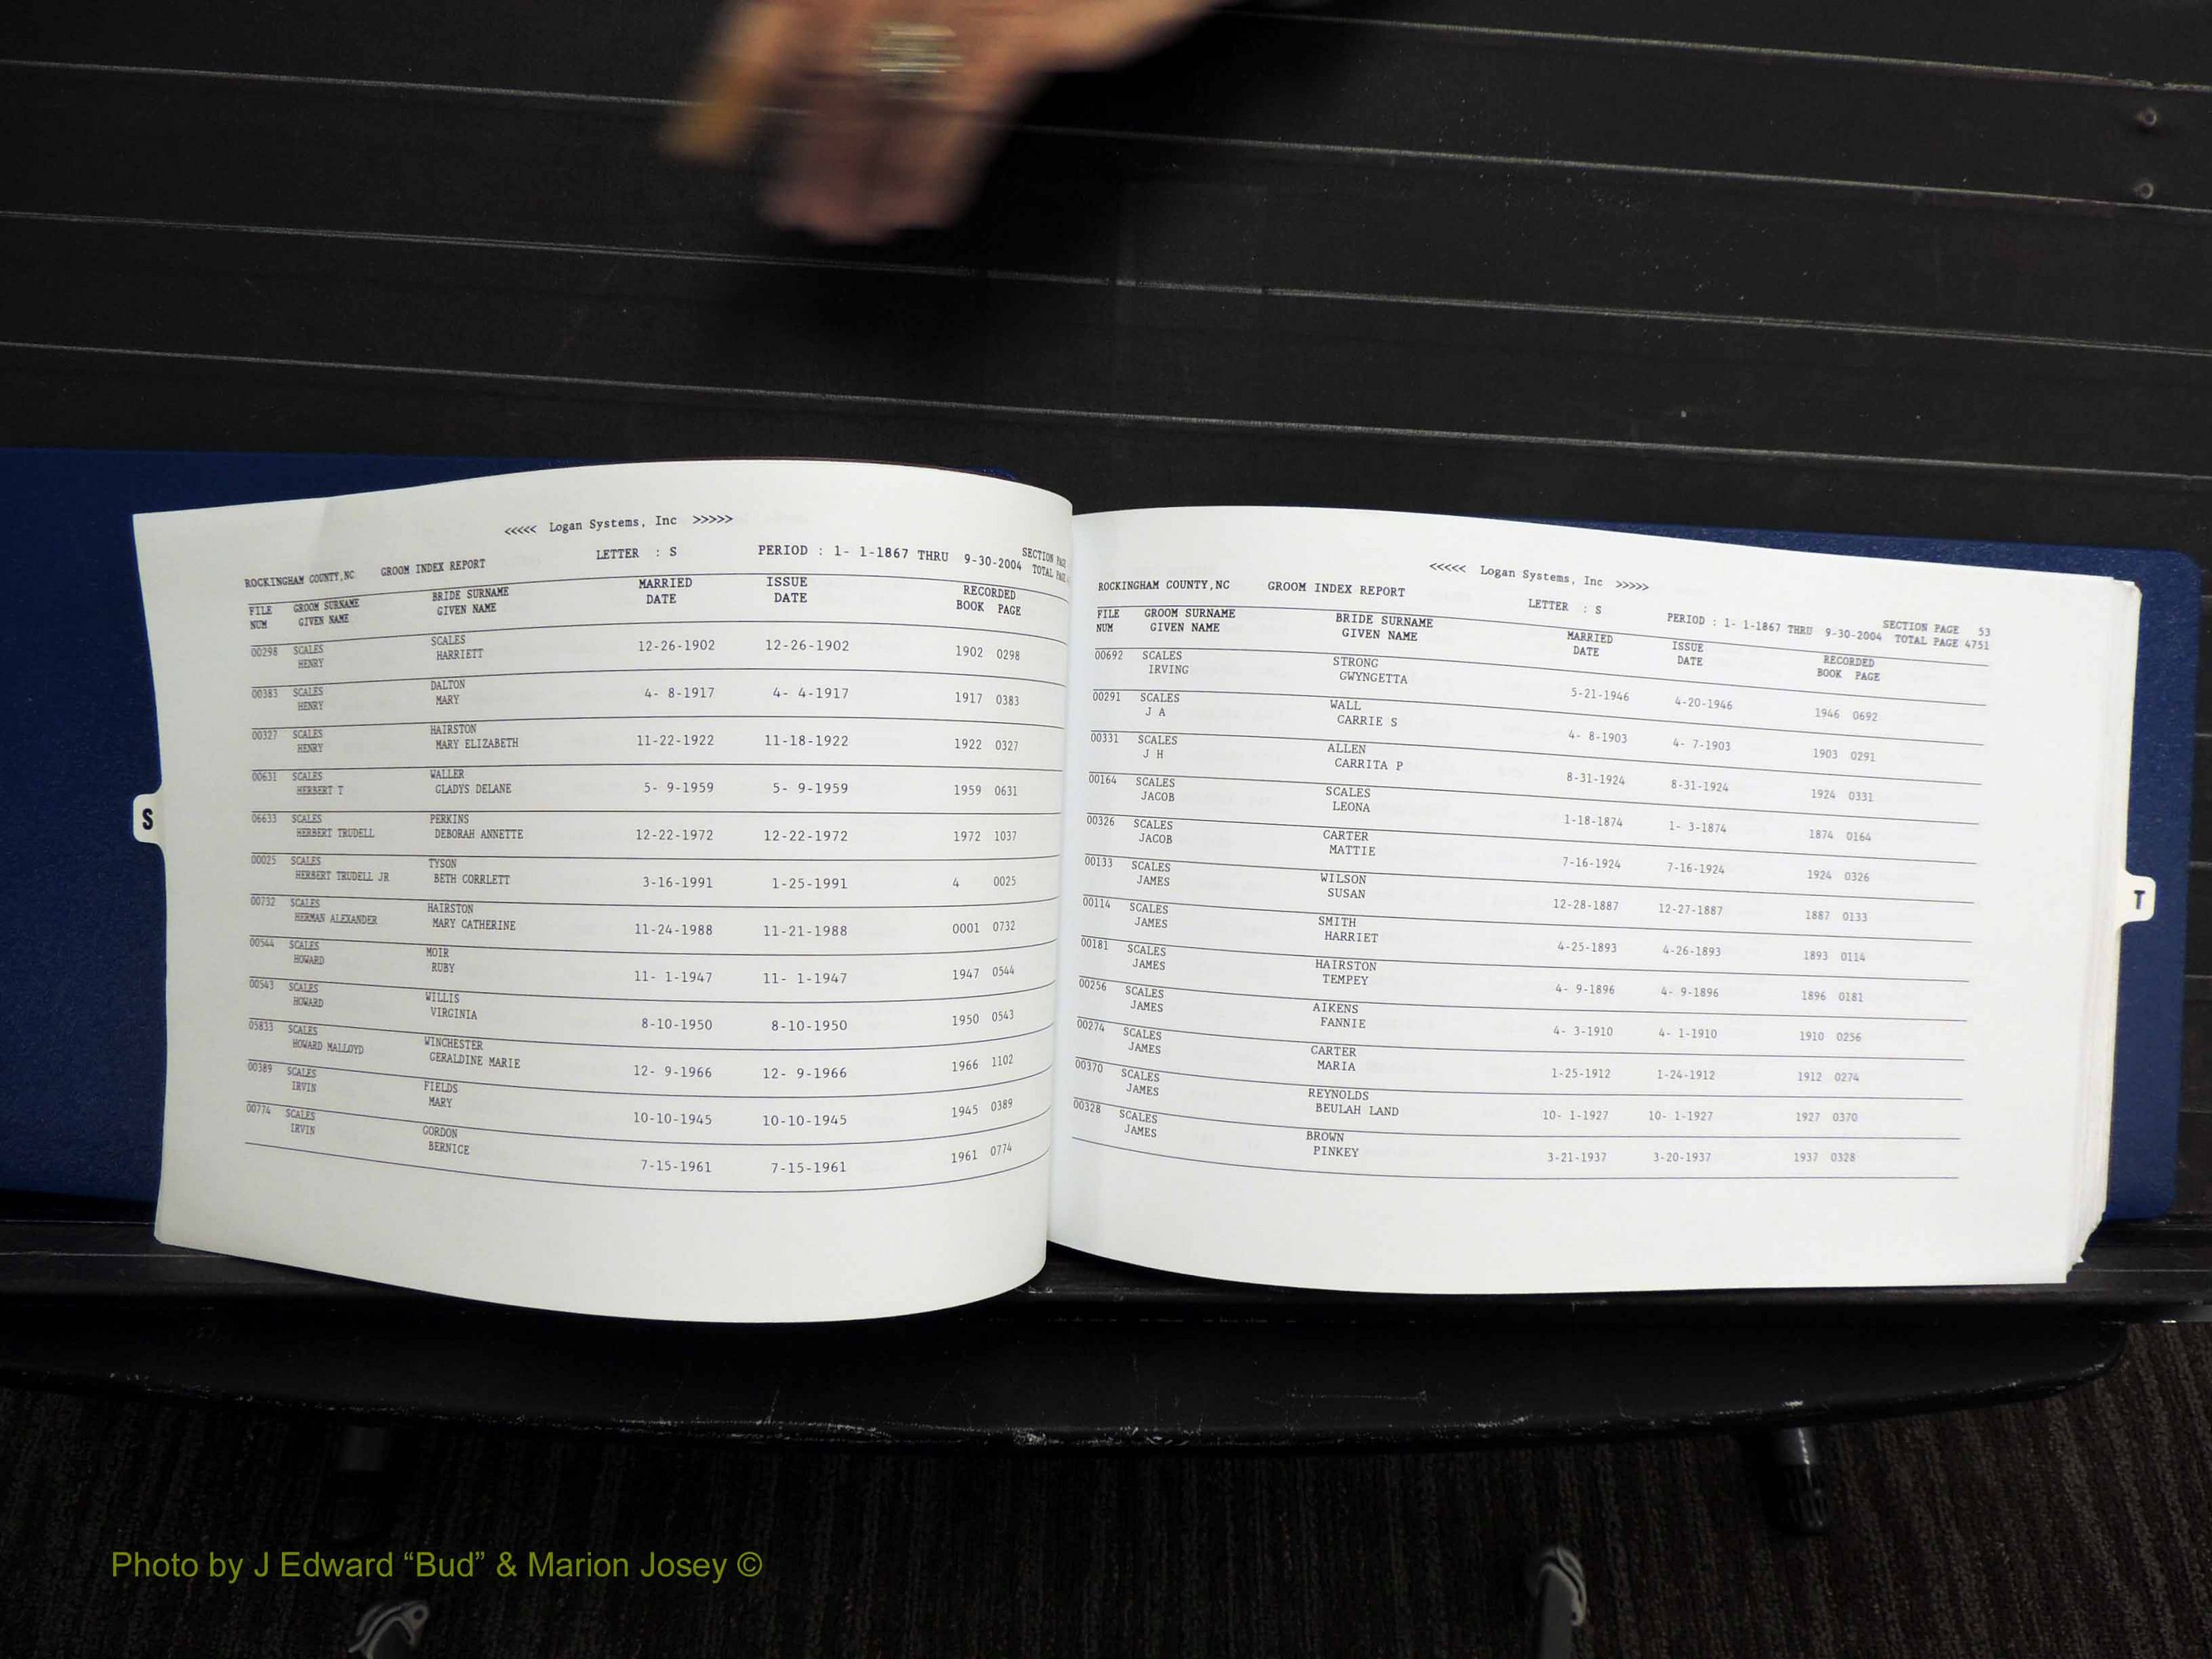 <<<<< Logan Systems, Inc >>>>>
ROCKINGHAM COUNTY,NC GROOM INDEX REPORT LETTER : S PERIOD : 1- 1-1867 THRU 9-30-2004 SECTION PAGE
TOTAL PAGE
FILE GROOM SURNAME BRIDE SURNAME MARRIED ISSUE RECORDED
NUM GIVEN NAME GIVEN NAME DATE DATE BOOK PAGE
00298 SCALES SCALES 12-26-1902 12-26-1902 1902 0298
HENRY HARRIETT
00383 SCALES DALTON 4- 8-1917 4- 4-1917 1917 0383
HENRY MARY
00327 SCALES HAIRSTON 11-22-1922 11-18-1922 1922 0327
HENRY MARY ELIZABETH
00631 SCALES WALLER 5- 9-1959 5- 9-1959 1959 0631
HERBERT T GLADYS DELANE
06633 SCALES PERKINS 12-22-1972 12-22-1972 1972 1037
HERBERT TRUDELL DEBORAH ANNETTE
00025 SCALES TYSON 3-16-1991 1-25-1991 4 0025
HERBERT TRUDELL JR BETH CORRLETT
00732 SCALES HAIRSTON 11-24-1988 11-21-1988 0001 0732
HERMAN ALEXANDER MARY CATHERINE
00544 SCALES MOIR 11- 1-1947 11- 1-1947 1947 0544
HOWARD RUBY
00543 SCALES WILLIS 8-10-1950 8-10-1950 1950 0543
HOWARD VIRGINIA
05833 SCALES WINCHESTER 12- 9-1966 12- 9-1966 1966 1102
HOWARD MALLOYD GERALDINE MARIE
00389 SCALES FIELDS 10-10-1945 10-10-1945 1945 0389
IRVIN MARY
00774 SCALES GORDON 7-15-1961 7-15-1961 1961 0774
IRVIN BERNICE
S
<<<<< Logan Systems, Inc >>>>>
ROCKINGHAM COUNTY,NC GROOM INDEX REPORT LETTER : S PERIOD : 1- 1-1867 THRU 9-30-2004 SECTION PAGE 53
TOTAL PAGE 4751
FILE GROOM SURNAME BRIDE SURNAME MARRIED ISSUE RECORDED
NUM GIVEN NAME GIVEN NAME DATE DATE BOOK PAGE
00692 SCALES STRONG 5-21-1946 4-20-1946 1946 0692
IRVING GWYNGETTA
00291 SCALES WALL 4- 8-1903 4- 7-1903 1903 0291
J A CARRIE S
00331 SCALES ALLEN 8-31-1924 8-31-1924 1924 0331
J H CARRITA P
00164 SCALES SCALES 1-18-1874 1- 3-1874 1874 0164
JACOB LEONA
00326 SCALES CARTER 7-16-1924 7-16-1924 1924 0326
JACOB MATTIE
00133 SCALES WILSON 12-28-1887 12-27-1887 1887 0133
JAMES SUSAN
00114 SCALES SMITH 4-25-1893 4-26-1893 1893 0114
JAMES HARRIET
00181 SCALES HAIRSTON 4- 9-1896 4- 9-1896 1896 0181
JAMES TEMPEY
00256 SCALES AIKENS 4- 3-1910 4- 1-1910 1910 0256
JAMES FANNIE
00274 SCALES CARTER 1-25-1912 1-24-1912 1912 0274
JAMES MARIA
00370 SCALES REYNOLDS 10- 1-1927 10- 1-1927 1927 0370
JAMES BEULAH LAND
00328 SCALES BROWN 3-21-1937 3-20-1937 1937 0328
JAMES PINKEY
T
Photo by J Edward “Bud” & Marion Josey ©